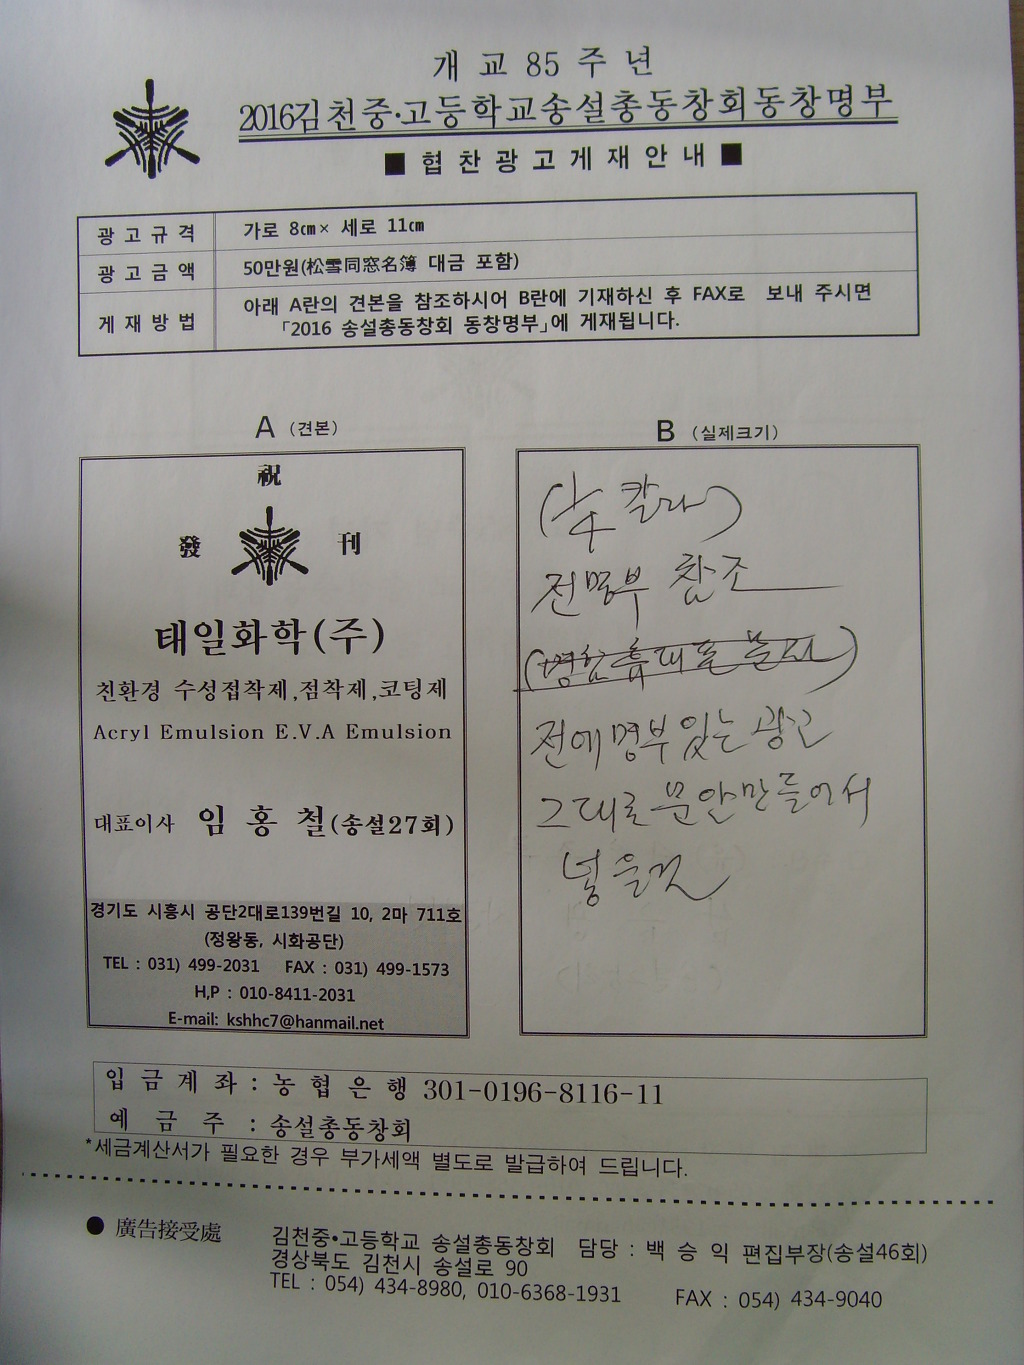 개 교 85 주 년
2016김천중·고등학교송설총동창회동창명부
■ 협 찬 광 고 게 재 안 내 ■
광 고 규 격 가로 8㎝× 세로 11㎝
광 고 금 액 50만원(松雪同窓名簿 대금 포함)
게 재 방 법 아래 A란의 견본을 참조하시어 B란에 기재하신 후 FAX로 보내 주시면
「2016 송설총동창회 동창명부」에 게재됩니다.
A (견본)
祝
發 刊
태일화학(주)
친환경 수성접착제,점착제,코팅제
Acryl Emulsion E.V.A Emulsion
대표이사 임 홍 철(송설27회)
경기도 시흥시 공단2대로139번길 10, 2마 711호
(정왕동, 시화공단)
TEL : 031) 499-2031 FAX : 031) 499-1573
H,P : 010-8411-2031
E-mail: kshhc7@hanmail.net
B (실제크기)
칼라)
전명부 참조
전에 명부 있는 광고
그대로 문안 만들어서
넣을것
입 금 계 좌 : 농 협 은 행 301-0196-8116-11
예 금 주 : 송설총동창회
*세금계산서가 필요한 경우 부가세액 별도로 발급하여 드립니다.
● 廣告接受處 김천중•고등학교 송설총동창회 담당 : 백 승 익 편집부장(송설46회)
경상북도 김천시 송설로 90
TEL : 054) 434-8980, 010-6368-1931 FAX : 054) 434-9040